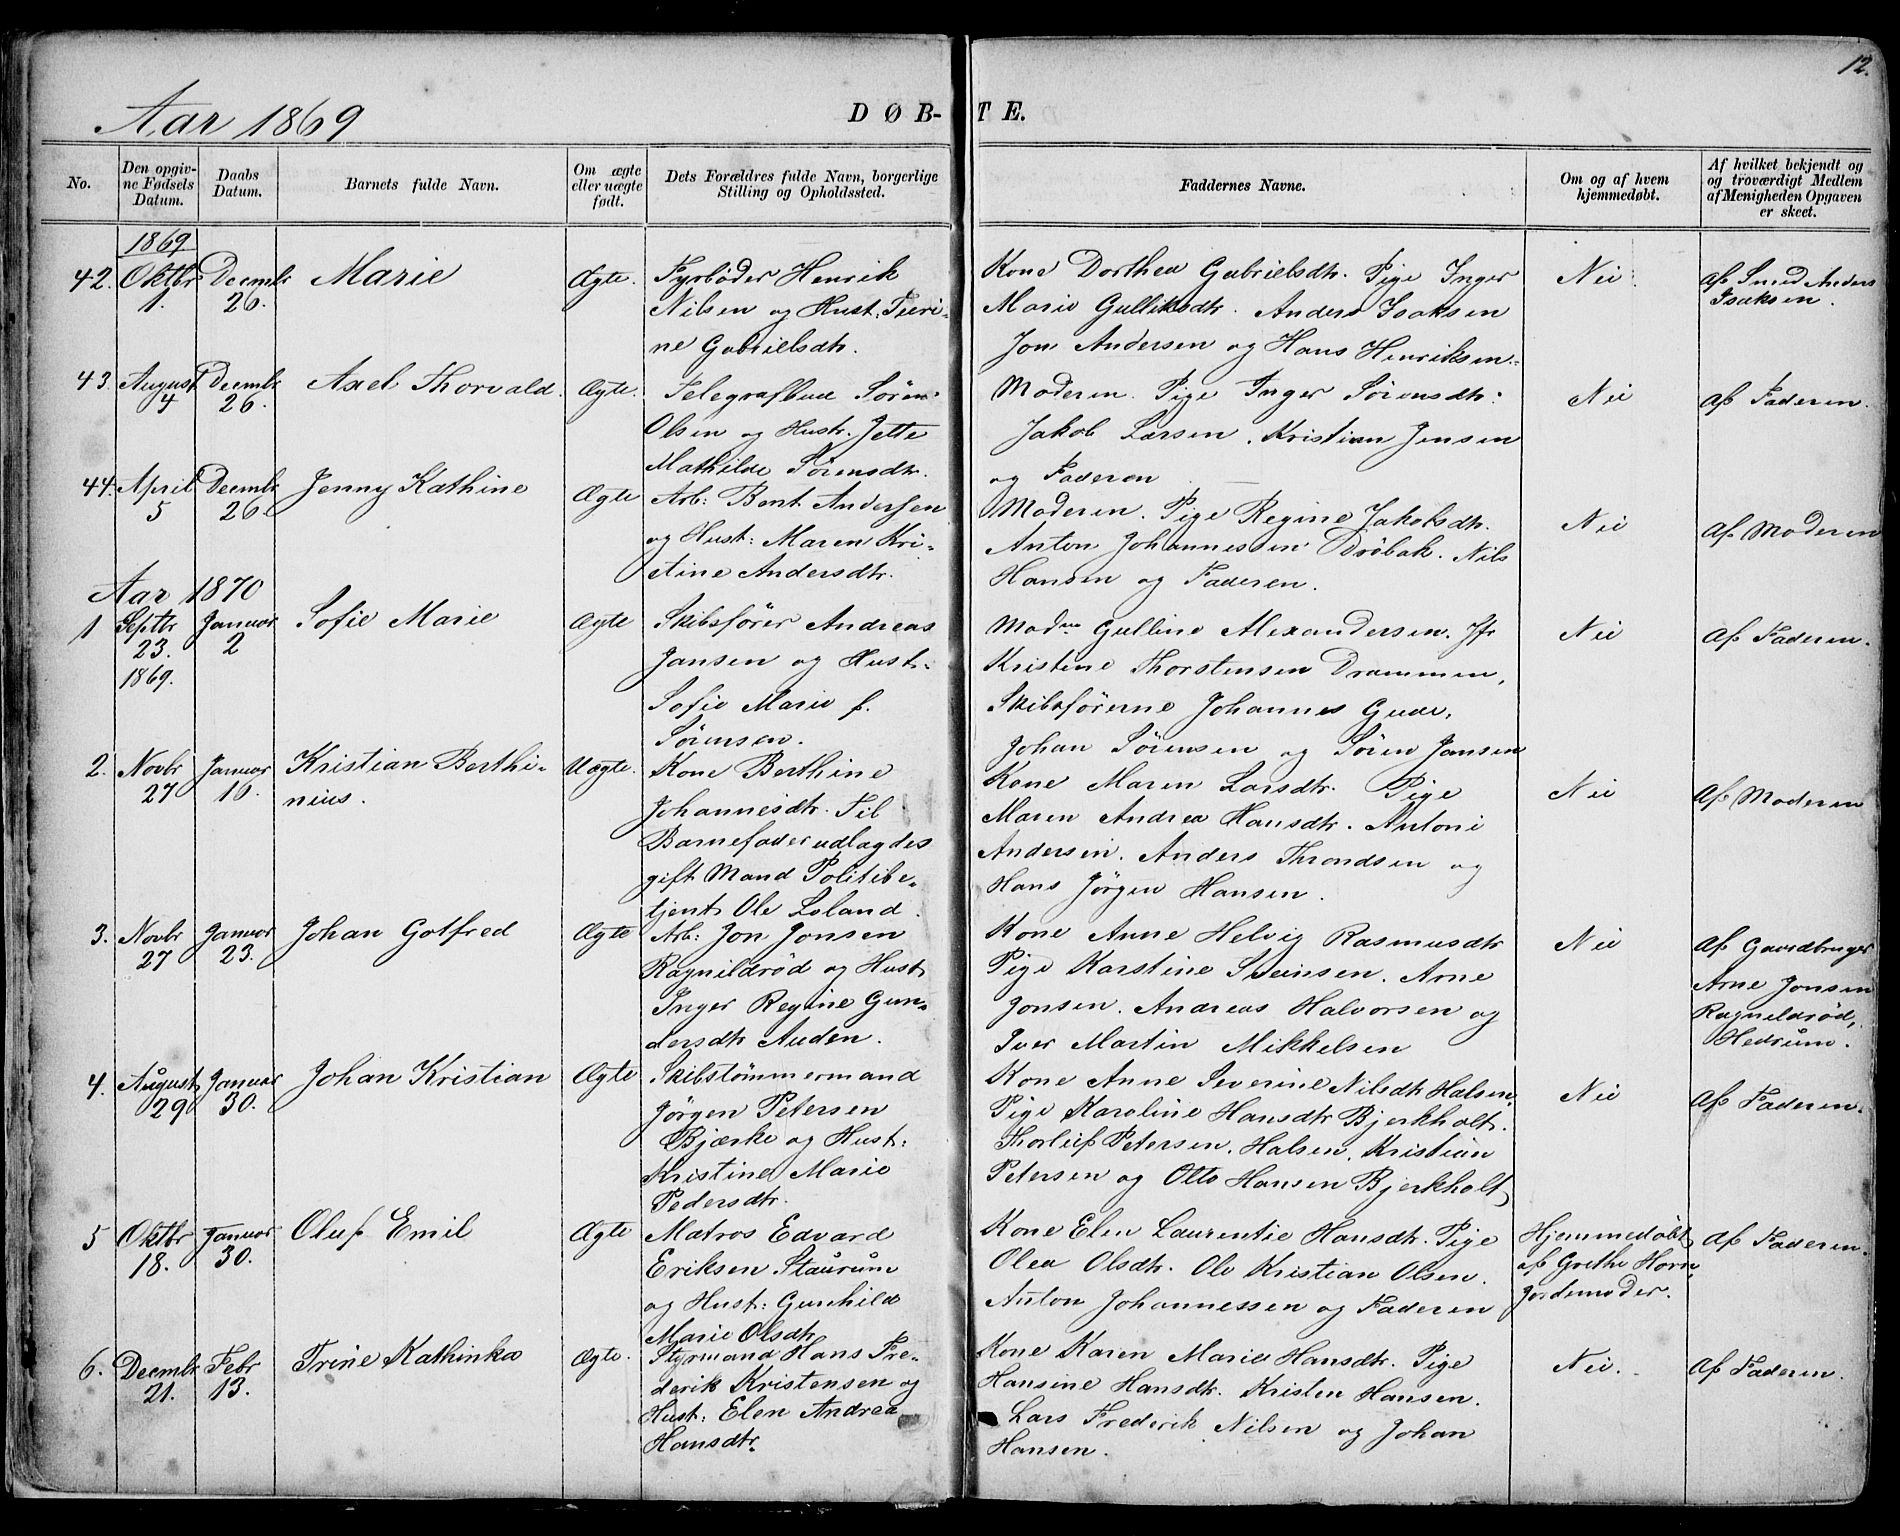 12.
Aar 1869
DØB-TE.
No.
Den opgiv-
ne Fødsels
Datum.
Daabs
Datum.
Barnets fulde Navn.
Om ægte
eller uægte
født.
Dets Forældres fulde Navn, borgerlige
Stilling og Opholdssted.
Faddernes Navne.
Om og af hvem
hjemmedøbt.
Af hvilket bekjendt og
og troværdigt Medlem
af Menigheden Opgaven
er skeet.
1869
42.
Oktbr
1.
Decmbr
26.
Marie
Ægte.
Fyrbøder Henrik
Nilsen og Hust:
ne Gabrielsdtr.
Kone Dorthea Gabrielsdtr. Pige Inger
Marie Gulliksdtr. Anders Isaksen
Jon Andersen og Hans Henriksen.
Nei
Af Smed Anders
Isaksen.
43.
August
4
Decmbr
26.
Axel Thorvald.
Ægte.
Telegrafbud Søren
Olsen og Hustr. Jette
Mathilde Sørensdtr.
Moderen. Pige Inger Sørensdtr.
Jakob Larsen. Kristian Jensen
og Faderen
Nei
Af Faderen.
44.
April
5
Decmbr
26.
Jenny Kathine
Ægte
Arb: Bent Andersen
og Hust: Maren Kri-
stine Andersdtr.
Moderen. Pige Regine Jakobsdtr.
Anton Johannessen Drøbak. Nils
Hansen og Faderen.
Nei
Af Moderen
Aar 1870
1
Septbr
23.
1869.
Januar
2
Sofie Marie
Ægte
Skibsfører Andreas
Jansen og Hust.
Sofie Marie f.
Sørensen.
Madme Gulline Alexandersen. Jfr
Kristine Thorstensen Drammen,
Skibsførerne Johannes Gude,
Johan Sørensen og Søren Jansen
Nei
Af Faderen.
2.
Novbr
27
Januar
16.
Kristian Berthi-
nius.
Uægte.
Kone Berthine
Johannesdtr. Til
Barnefader udlagdes
gift Mand Politibe-
tjent Ole Loland.
Kone Maren Larsdtr. Pige
Maren Andrea Hansdtr. Antoni
Andersen. Anders Throndsen og
Hans Jørgen Hansen.
Nei
Af Moderen
3.
Novbr
27
Januar
23.
Johan Gotfred
Ægte
Arb: Jon Jonsen
Ragnildrød og Hust
Inger Regine Gun-
dersdtr Auden.
Kone Anne Helvig Rasmusdtr
Pige Karstine Steinsen. Arne
Jonsen. Andreas Halvorsen og
Iver Martin Mikkelsen
Nei
Af Gaardbruger
Arne Jonsen
Ragnildrød,
Hedrum.
4.
August
29
Januar
30.
Johan Kristian
Ægte
Skibstømmermand
Jørgen Petersen
Bjærke og Hust:
Kristine Marie
Pedersdtr.
Kone Anne Severine Nilsdtr Halsen.
Pige Karoline Hansdtr Bjerkholt.
Thorleif Petersen. Halsen. Kristian
Petersen og Otto Hansen Bjerkholt
Nei
Af Faderen.
5
Oktbr
18.
Januar
30.
Oluf Emil
Ægte
Matros Edvard
Eriksen Staurum
og Hust: Gunhild
Marie Olsdtr
Kone Elen Laurentie Hansdtr. Pige
Olea Olsdtr. Ole Kristian Olsen.
Anton Johannessen og Faderen
Hjemmedøbt
af Grethe Horn,
Jordemoder.
Af Faderen.
6.
Decmbr
21.
Febr
13.
Trine Kathinka
Ægte.
Styrmand Hans Fre-
derik Kristensen og
Hust: Elen Andrea
Hansdtr.
Kone Karen Marie Hansdtr. Pige
Hansine Hansdtr. Kristen Hansen.
Lars Frederik Nilsen og Johan
Hansen.
Nei.
Af Faderen.